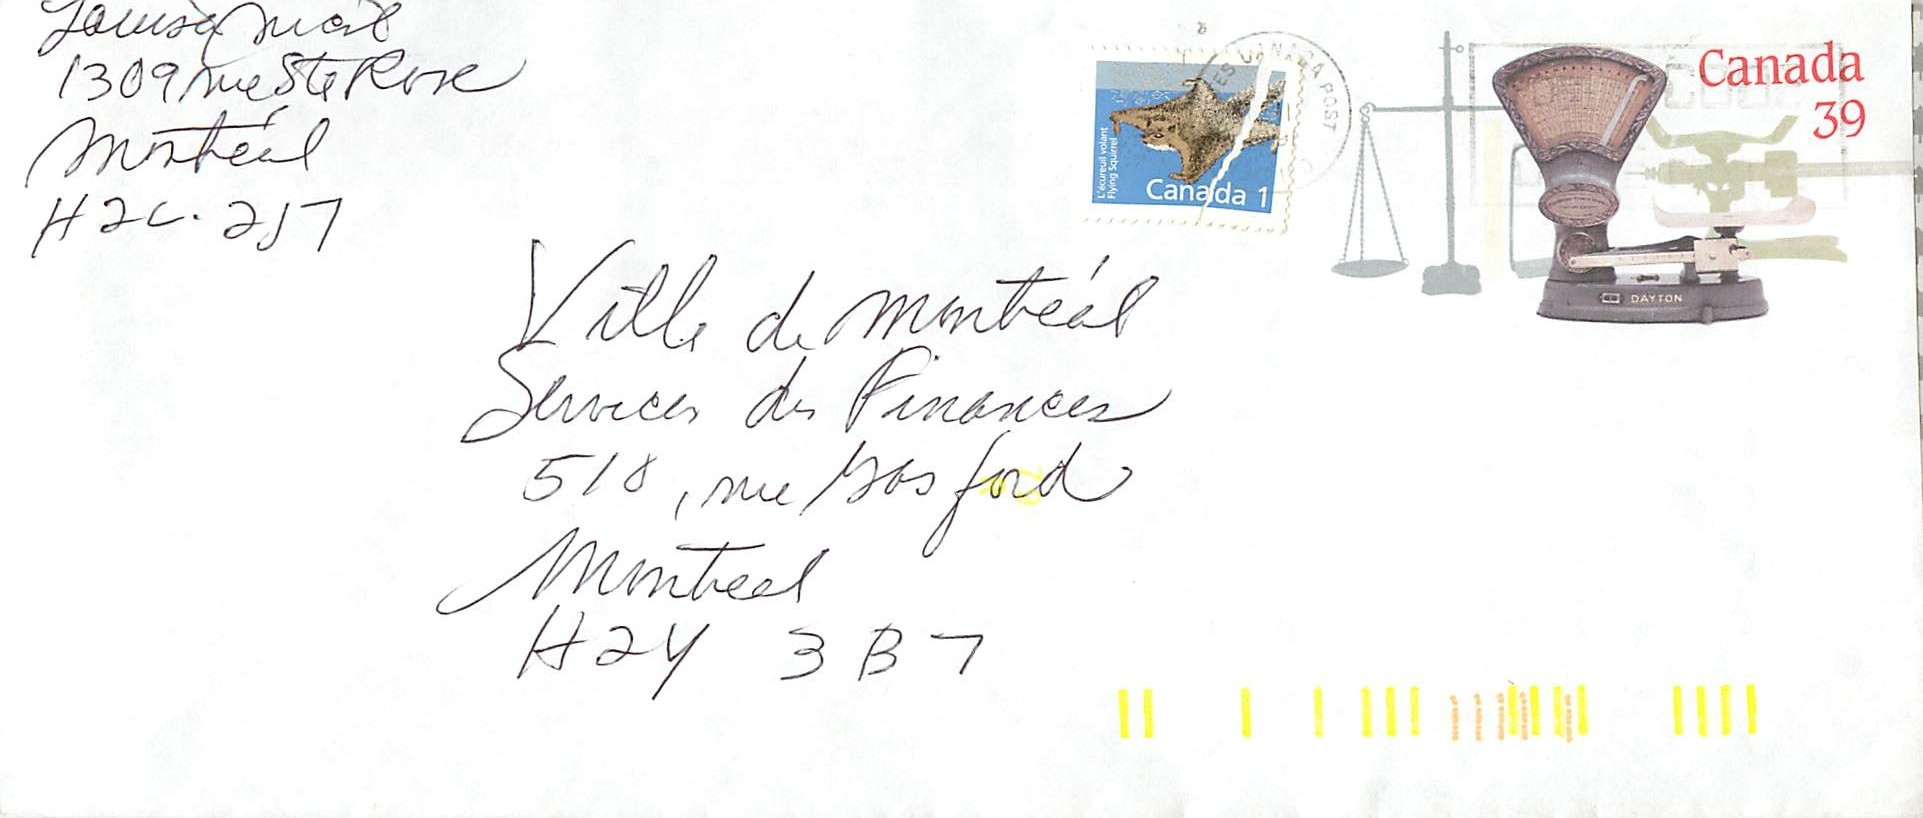 Louise Meil
1309 rue Ste Rose
Montréal
H2L. 2J7
Ville de Montréal
Services des Finances
518, rue Gosford
Montreal
H2Y 3B7
L'écureuil volant
Flying Squirrel
Canada 1
CANADA POST
Canada
39
DAYTON